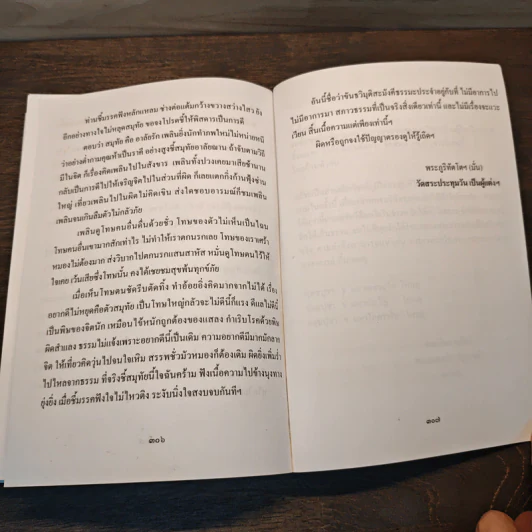 ท่านชี้มรรคฟังหลักแหลม ช่างต่อแต้มกว้างขวางสว่างไสว ยัง
อีกอย่างทางใจไม่หลุดสมุทัย ขอจงโปรดชี้ให้พิสดารเป็นการดี
ตอบว่า สมุทัย คือ อาลัยรัก เพลินยิ่งนักทำภพใหม่ไม่หน่ายหนี
ว่าอย่างต่ำกามคุณห้าเป็นราคี อย่างสูงชี้สมุทัยอาลัยฌาน ถ้าจับตามวิถี
มีในจิต ก็เรื่องคิดเพลินไปในสังขาร เพลินทั้งปวงเคยมาเสียช้านาน
กลับเป็นการดีไปให้เจริญจิตไปในส่วนที่ผิด ก็เลยแตกกิ่งก้านฟุ้งซ่าน
ใหญ่ เที่ยวเพลินไปในผิดไม่คิดเขิน ส่งใดชอบอารมณ์ก็ชมเพลิน
เพลินจนเกินลืมตัวไม่กลัวภัย
เพลินดูโทษคนอื่นดื่นด้วยชั่ว โทษของตัวไม่เห็นเป็นไฉน
โทษคนอื่นเขามากสักเท่าไร ไม่ทำให้เราตกนรกเลย โทษของเราเศร้า
หมองไม่ต้องมาก ส่งวิบากไปตกนรกแสนสาหัส หมั่นดูโทษตนไว้ให้
ใจเคย เว้นเสียซึ่งโทษนั้น คงได้เชยชมสุขพ้นทุกข์ภัย
เมื่อเห็นโทษตนชัดรีบตัดทิ้ง ทำอ้อยอิ่งคิดมากจากไม่ได้ เรื่อง
อยากดีไม่หยุดคือตัวสมุทัย เป็นโทษใหญ่กลัวจะไม่ดีนี้ก็แรง ดีแลไม่ดีนี้
เป็นพิษของจิตนัก เหมือนไข้หนักถูกต้องของแสลง กำเริบโรคด้วยพิษ
ผิดสำแลง ธรรมไม่แจ้งเพราะอยากดีนี้เป็นเดิม ความอยากดีมีมากมักลาก
จิต ให้เที่ยวคิดวุ่นไปจนใจเหิม สรรพชั่วมัวหมองก็ต้องเติม ผิดยิ่งเพิ่มร่ำ
ไปไหลจากธรรม ที่จริงชี้สมุทัยนี้ใจฉันคร้าม ฟังเนื้อความไปข้างนุงทาง
ยุ่งยิ่ง เมื่อชี้มรรคฟังใจไม่ไหวติง ระงับนิ่งใจสงบจบกันทีฯ
๓๐๖
อันนี้ชื่อว่าขันธวิมุติสะมังคีธรรมะประจำอยู่กับที่ ไม่มีอาการไป
ไม่มีอาการมา สภาวธรรมที่เป็นจริงสิ่งเดียวเท่านี้ และไม่มีเรื่องจะแวะ
เวียน สิ้นเนื้อความแต่เพียงเท่านี้ฯ
ผิดหรือถูกจงใช้ปัญญาตรองดูให้รู้เถิดฯ
พระภูริทัตโตฯ (มั่น)
วัดสระประทุมวัน เป็นผู้แต่งฯ
๓๐๗